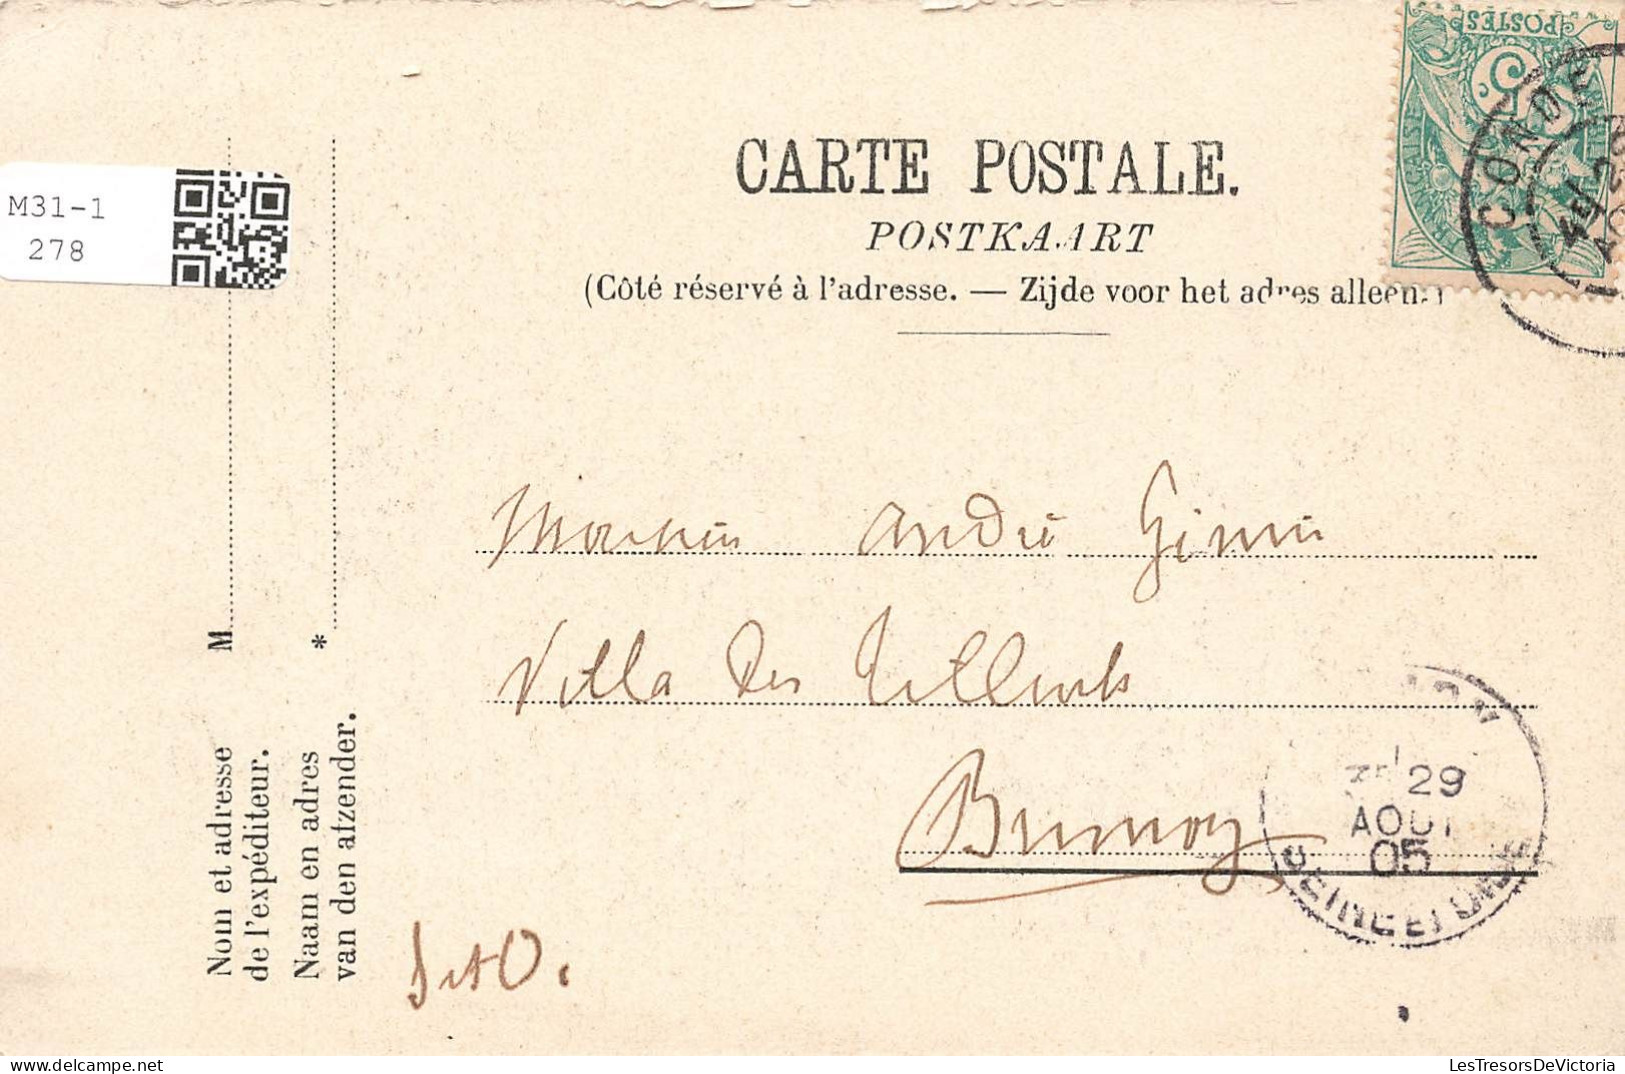 POSTES
CONDE
M31-1
278
CARTE POSTALE.
POSTKAART
(Côté réservé à l'adresse. — Zijde voor het adres alleen.)
Monsieur André
Villa des Tilleuls
Brunoy
29
AOUT
05
SEINE ET OISE
S et O.
M
*
Nom et adresse
de l'expéditeur.
Naam en adres
van den afzender.
LesTresorsDeVictoria
https://www.delcampe.net